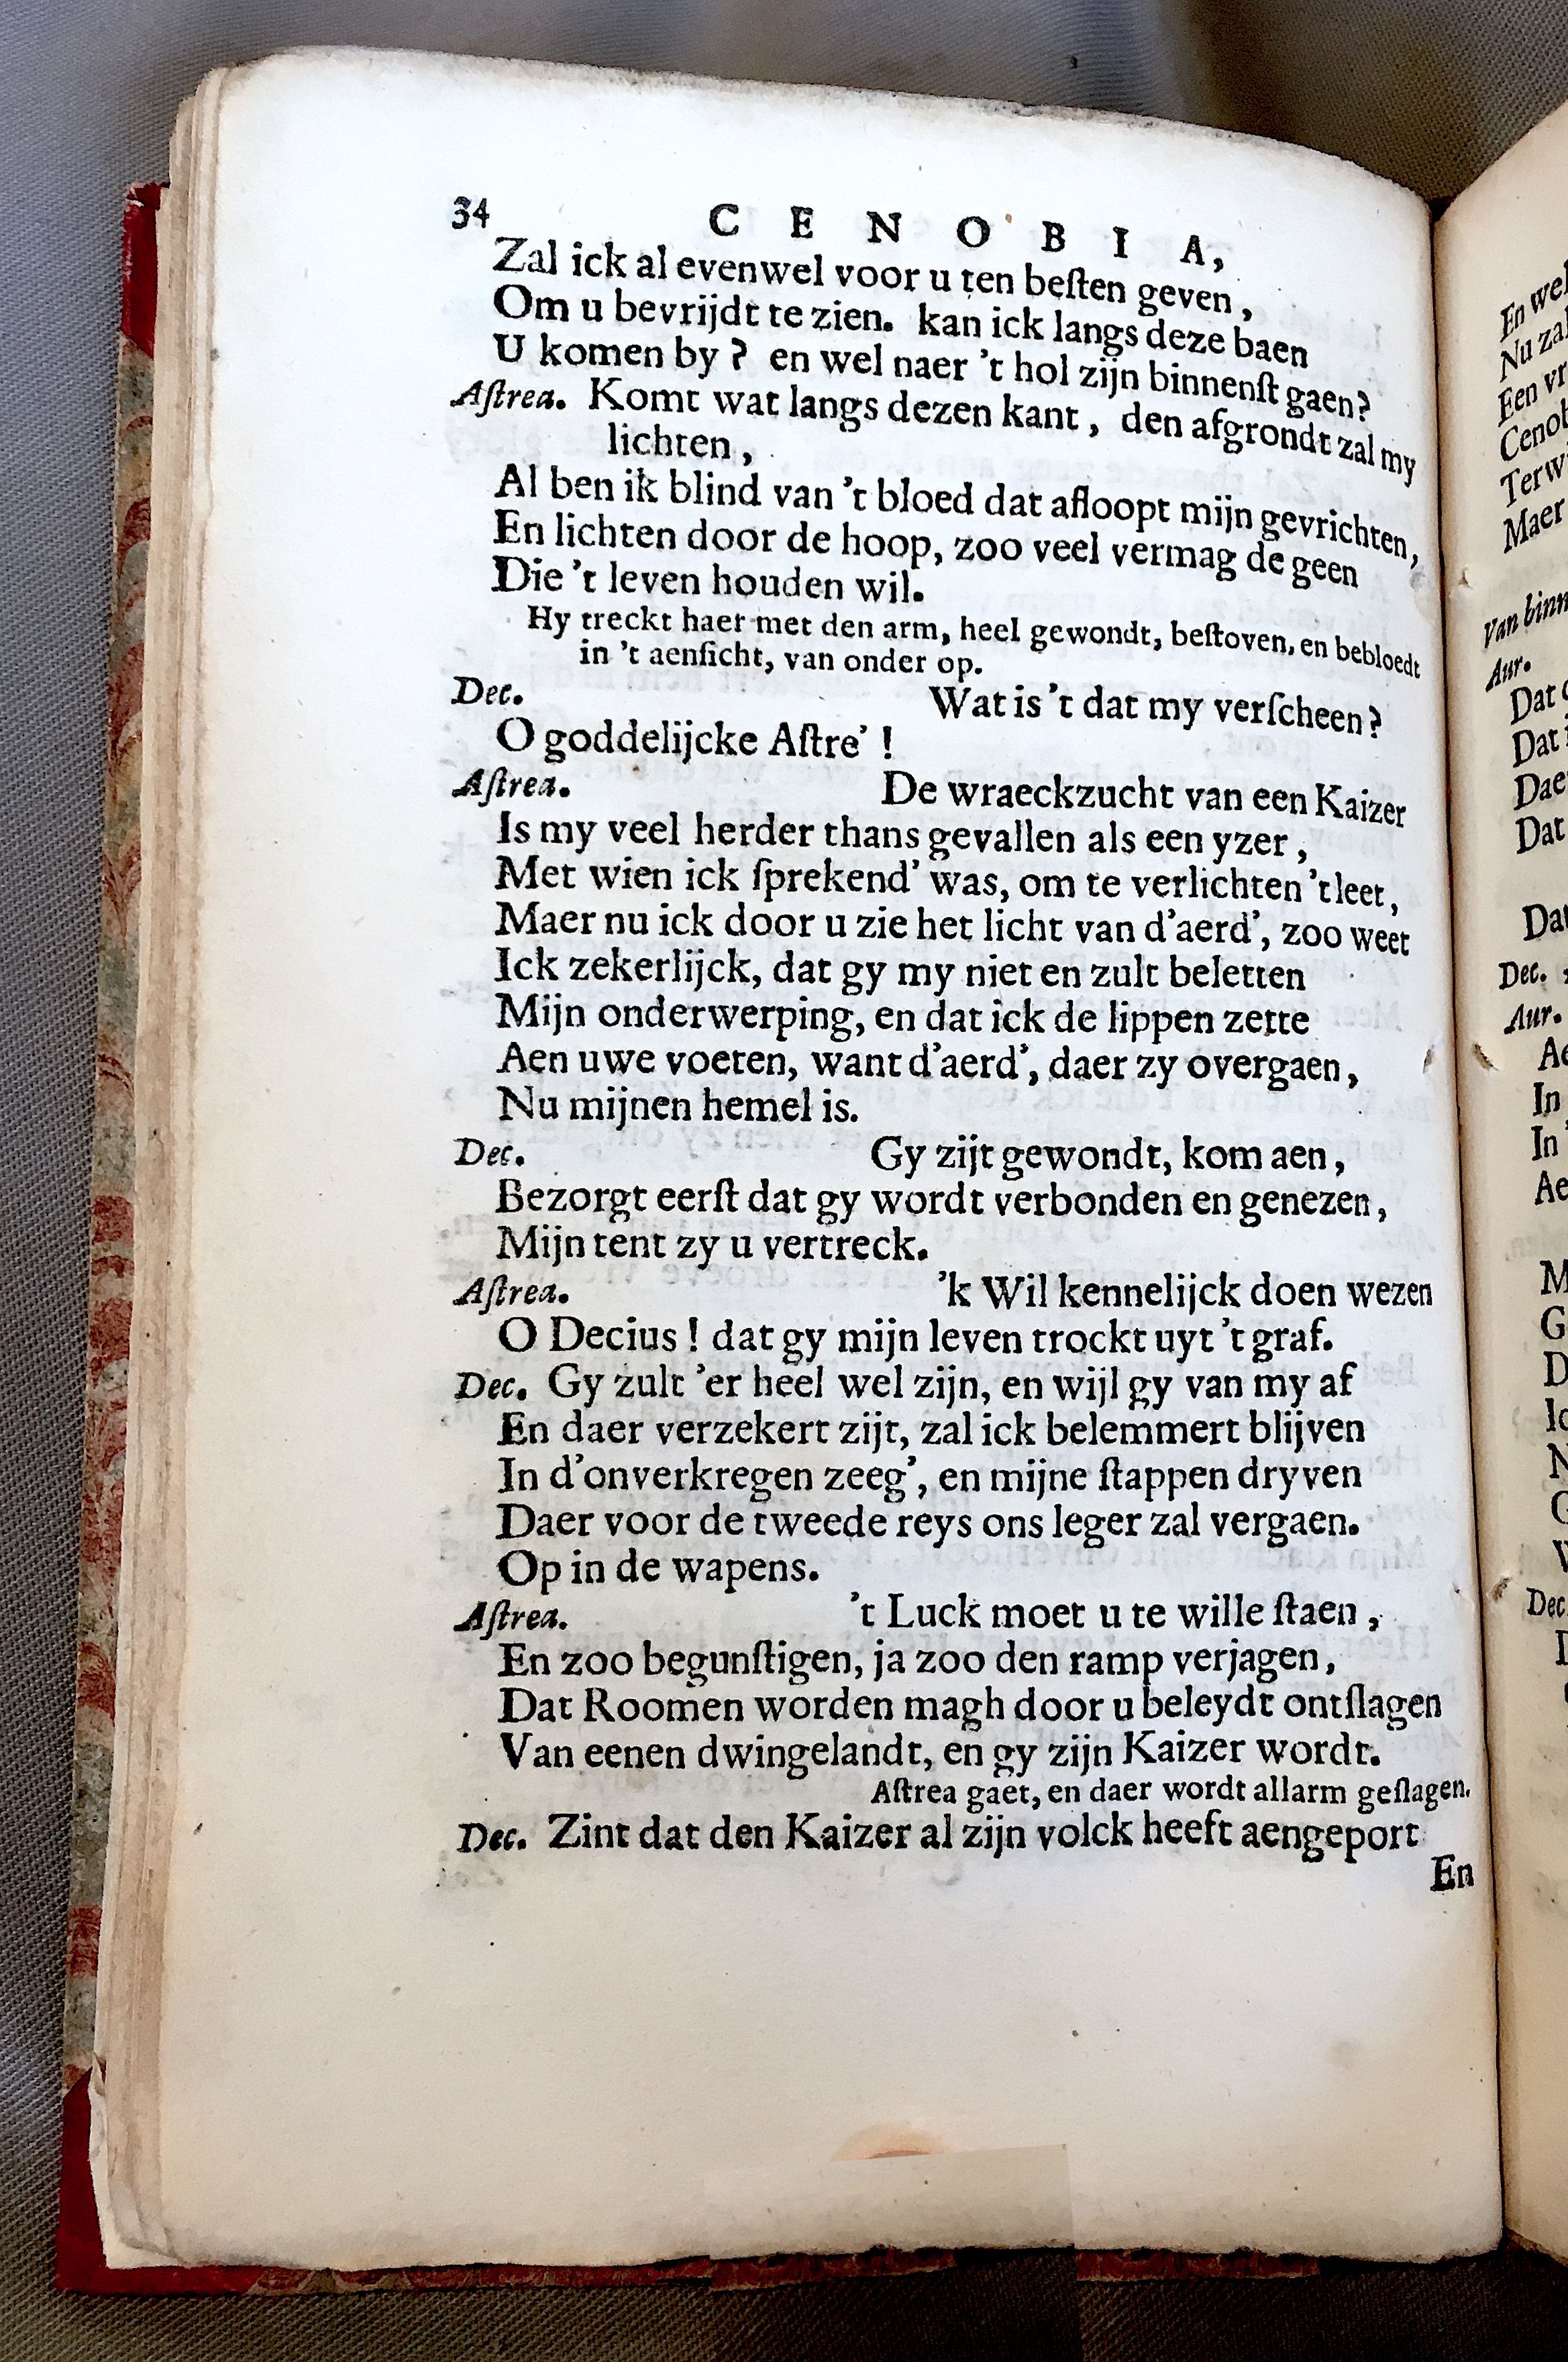 34 CENOBIA,
Zal ick al evenwel voor u ten beſten geven,
Om u bevrijdt te zien. kan ick langs deze baen
U komen by? en wel naer 't hol zijn binnenſt gaen?
Aſtrea. Komt wat langs dezen kant, den afgrondt zal my
lichten,
Al ben ik blind van 't bloed dat afloopt mijn gevrichten,
En lichten door de hoop, zoo veel vermag de geen
Die 't leven houden wil.
Hy treckt haer met den arm, heel gewondt, beſtoven, en bebloedt
in 't aenſicht, van onder op.
Dec. Wat is 't dat my verſcheen?
O goddelijcke Aſtre'!
Aſtrea. De wraeckzucht van een Kaizer
Is my veel herder thans gevallen als een yzer,
Met wien ick ſprekend' was, om te verlichten 't leet,
Maer nu ick door u zie het licht van d'aerd', zoo weet
Ick zekerlijck, dat gy my niet en zult beletten
Mijn onderwerping, en dat ick de lippen zette
Aen uwe voeten, want d'aerd', daer zy overgaen,
Nu mijnen hemel is.
Dec. Gy zijt gewondt, kom aen,
Bezorgt eerſt dat gy wordt verbonden en genezen,
Mijn tent zy u vertreck.
Aſtrea. 'k Wil kennelijck doen wezen
O Decius! dat gy mijn leven trockt uyt 't graf.
Dec. Gy zult 'er heel wel zijn, en wijl gy van my af
En daer verzekert zijt, zal ick belemmert blijven
In d'onverkregen zeeg', en mijne ſtappen dryven
Daer voor de tweede reys ons leger zal vergaen.
Op in de wapens.
Aſtrea. 't Luck moet u te wille ſtaen,
En zoo begunſtigen, ja zoo den ramp verjagen,
Dat Roomen worden magh door u beleydt ontſlagen
Van eenen dwingelandt, en gy zijn Kaizer wordt.
Aſtrea gaet, en daer wordt allarm geſlagen.
Dec. Zint dat den Kaizer al zijn volck heeft aengeport
En
En wel
Nu zal
Een vr
Cenob
Terw
Maer
Van binn
Aur.
Dat
Dat
Dae
Dat
Dat
Dec.
Aur.
Ae
In
In
Ae
M
G
D
N
Dec